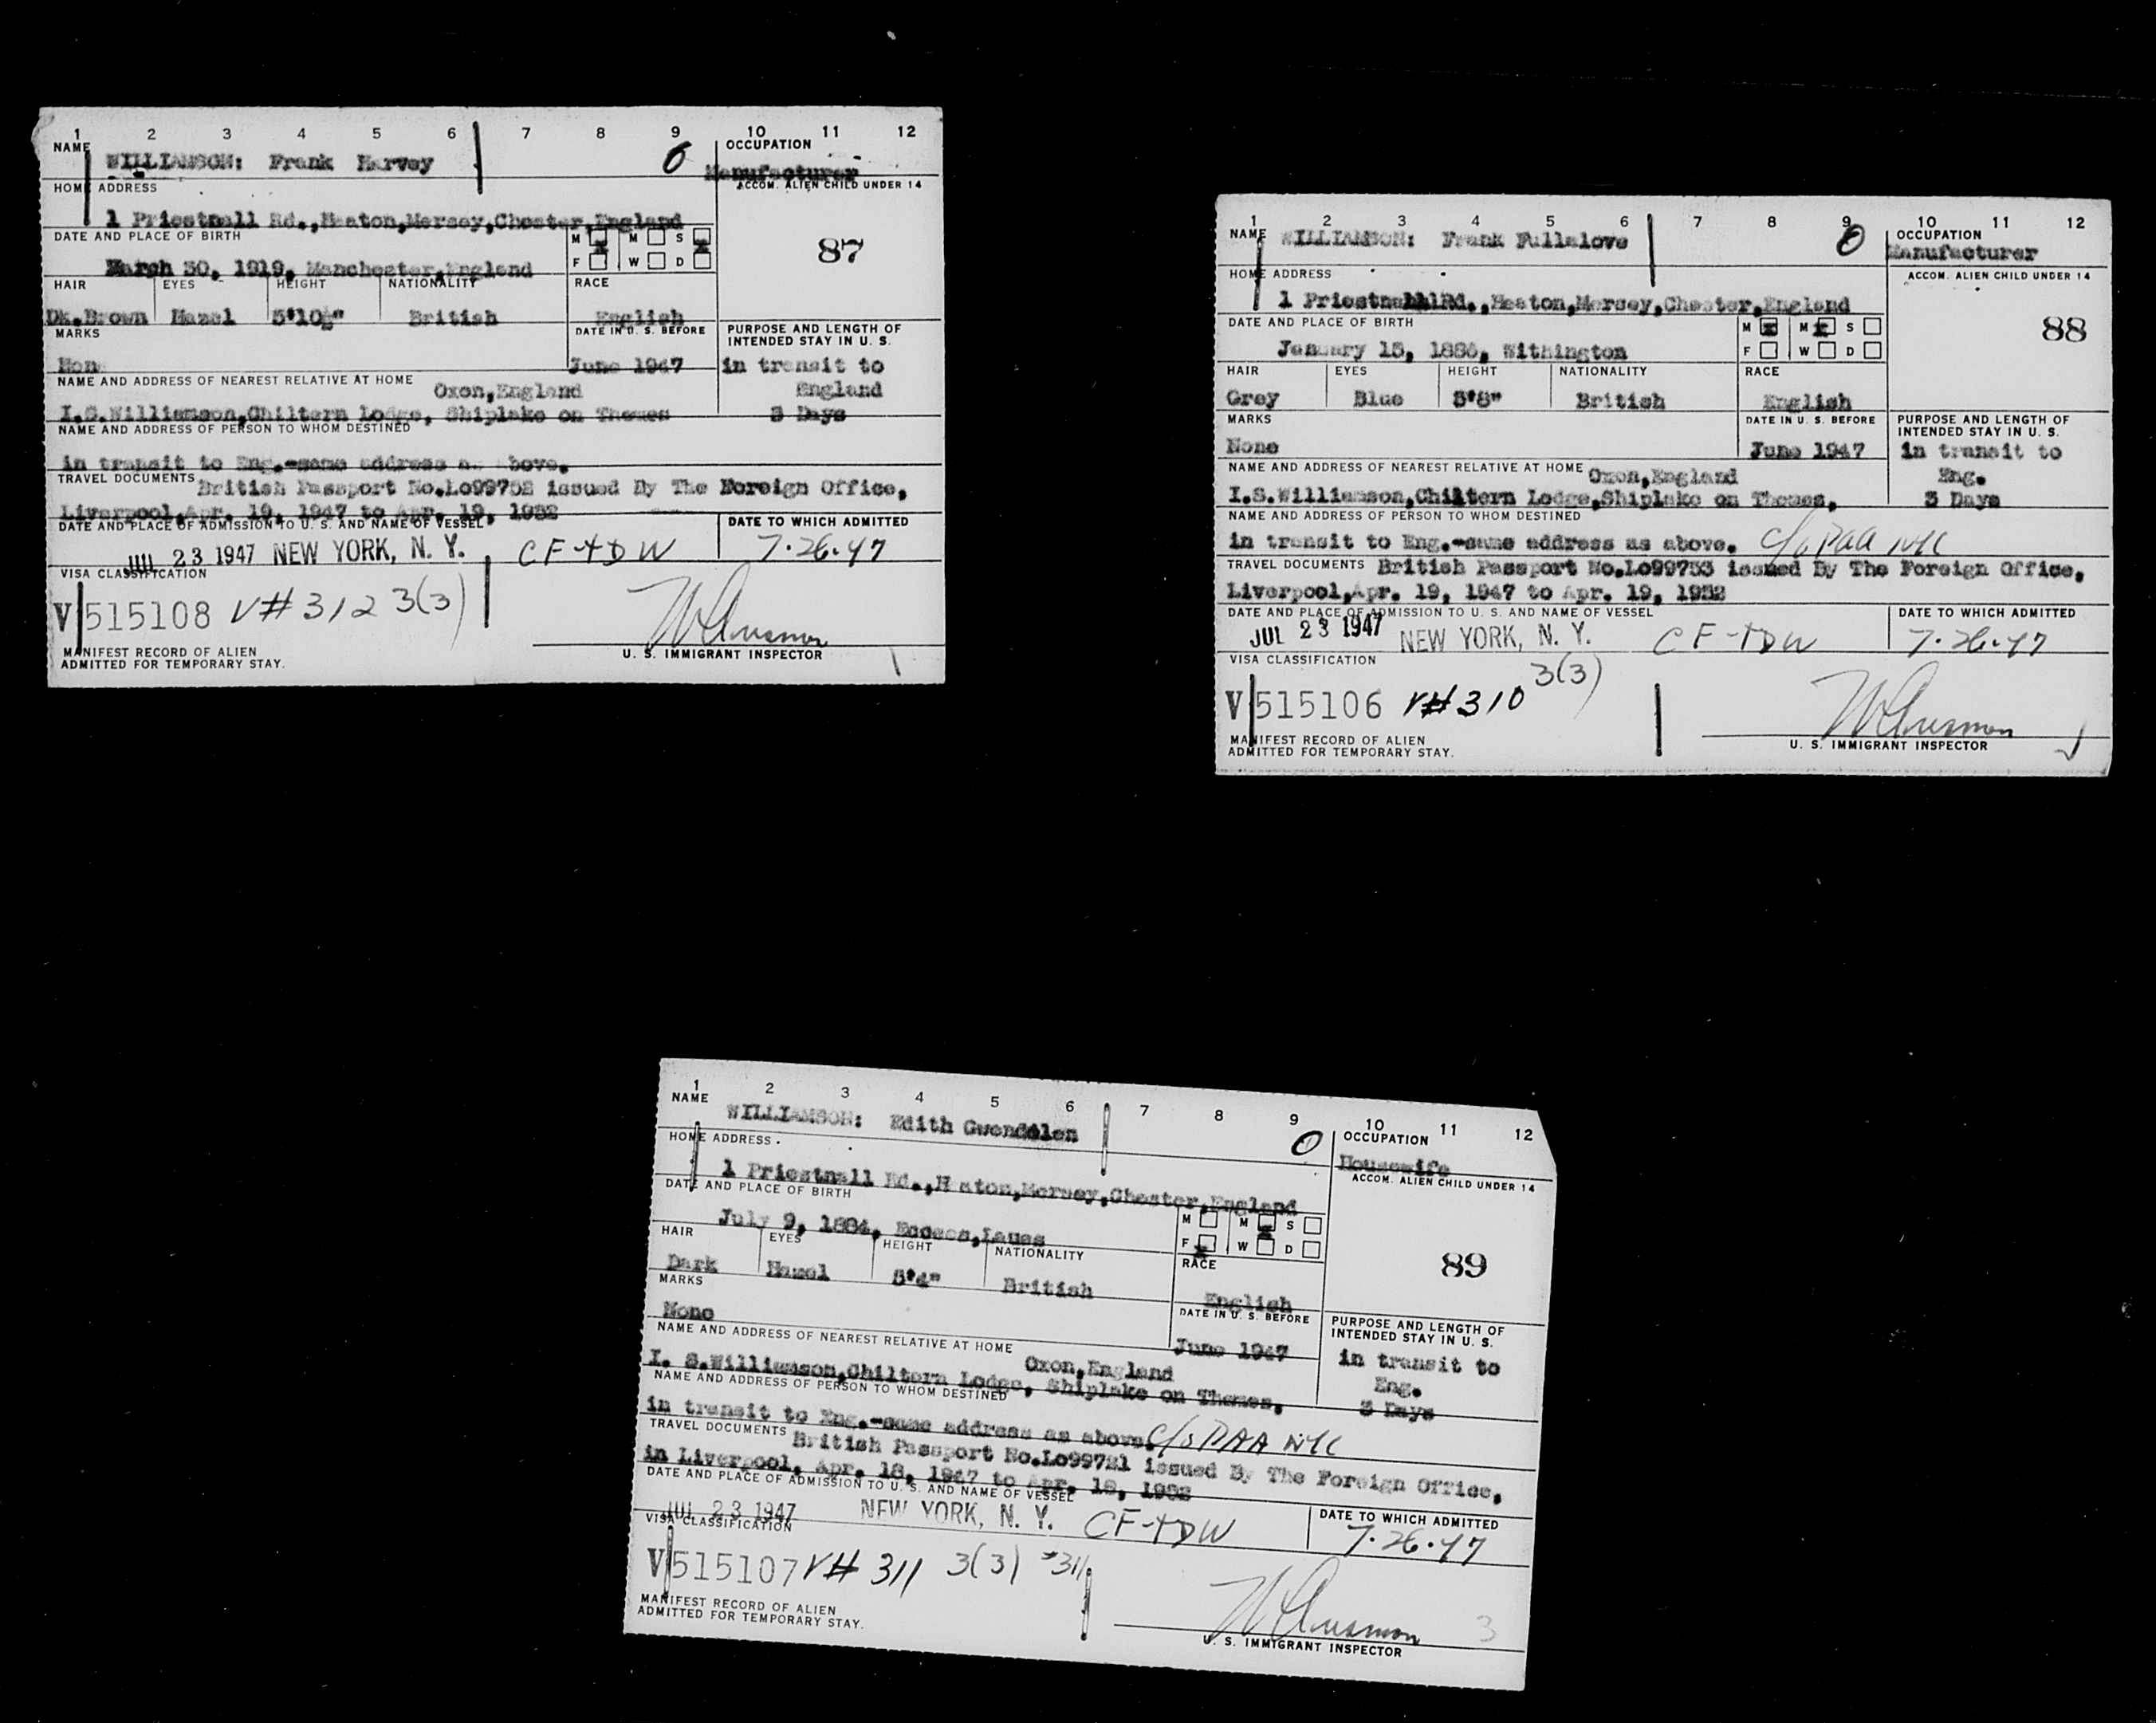 1 2 3 4 5 6 7 8 9 10 11 12
NAME WILLIAMSON: Frank Harvey
OCCUPATION
Manufacturer
HOME ADDRESS
1 Priestnall Rd.,Heaton,Mersey,Chester,England
ACCOM. ALIEN CHILD UNDER 14
87
DATE AND PLACE OF BIRTH
March 30, 1919, Manchester,England
M M S
F W D
HAIR EYES HEIGHT NATIONALITY RACE
Dk.Brown Hazel 5'10½" British English
MARKS DATE IN U. S. BEFORE
Non June 1947
PURPOSE AND LENGTH OF
INTENDED STAY IN U. S.
in transit to
England
3 Days
NAME AND ADDRESS OF NEAREST RELATIVE AT HOME
Oxon,England
I.S.Williamson,Chiltern Lodge, Shiplake on Thames
NAME AND ADDRESS OF PERSON TO WHOM DESTINED
in transit to Eng.-same address a bove.
TRAVEL DOCUMENTS British Passport No.Lo99752 issued By The Foreign Office,
Liverpool,Apr. 19, 1947 to Apr. 19, 1952
DATE AND PLACE OF ADMISSION TO U. S. AND NAME OF VESSEL DATE TO WHICH ADMITTED
JUL 23 1947 NEW YORK, N. Y. CF-TDW 7·26·47
VISA CLASSIFICATION
V 515108 V# 312 3(3)
MANIFEST RECORD OF ALIEN
ADMITTED FOR TEMPORARY STAY.
U. S. IMMIGRANT INSPECTOR
1 2 3 4 5 6 7 8 9 10 11 12
NAME WILLIAMSON: Frank Fullalove
OCCUPATION
Manufacturer
HOME ADDRESS
1 Priestnall Rd.,Heaton,Mersey,Chester,England
ACCOM. ALIEN CHILD UNDER 14
88
DATE AND PLACE OF BIRTH
January 15, Withington
M M S
F W D
HAIR EYES HEIGHT NATIONALITY RACE
Grey Blue 5'8" British English
MARKS DATE IN U. S. BEFORE
None June 1947
PURPOSE AND LENGTH OF
INTENDED STAY IN U. S.
in transit to
Eng.
3 Days
NAME AND ADDRESS OF NEAREST RELATIVE AT HOME
Oxon,England
I.S.Williamson,Chiltern Lodge,Shiplake on Thames,
NAME AND ADDRESS OF PERSON TO WHOM DESTINED
in transit to Eng.-same address as above. C/o PAA NYC
TRAVEL DOCUMENTS British Passport No.Lo99753 issued By The Foreign Office,
Liverpool,Apr. 19, 1947 to Apr. 19, 1952
DATE AND PLACE OF ADMISSION TO U. S. AND NAME OF VESSEL DATE TO WHICH ADMITTED
JUL 23 1947 NEW YORK, N. Y. CF-TDW 7·26·47
VISA CLASSIFICATION
V 515106 V# 310 3(3)
MANIFEST RECORD OF ALIEN
ADMITTED FOR TEMPORARY STAY.
U. S. IMMIGRANT INSPECTOR
1 2 3 4 5 6 7 8 9 10 11 12
NAME WILLIAMSON: Edith Gwendolen
OCCUPATION
Housewife
HOME ADDRESS
1 Priestnall Rd.,H aton,Mersey,Chester,England
ACCOM. ALIEN CHILD UNDER 14
89
DATE AND PLACE OF BIRTH
July 9, 1884, Eccles,Lancs
M M S
F W D
HAIR EYES HEIGHT NATIONALITY RACE
Dark Hazel 5'4" British English
MARKS DATE IN U. S. BEFORE
None June 1947
PURPOSE AND LENGTH OF
INTENDED STAY IN U. S.
in transit to
Eng.
3 Days
NAME AND ADDRESS OF NEAREST RELATIVE AT HOME
Oxon,England
I. S.Williamson,Chiltern Lodge, Shiplake on Thames,
NAME AND ADDRESS OF PERSON TO WHOM DESTINED
in transit to Eng.-same address as above. C/o PAA NYC
TRAVEL DOCUMENTS British Passport No.Lo99721 issued By The Foreign Office,
in Liverpool, Apr. 18, 1947 to Apr. 18, 1952
DATE AND PLACE OF ADMISSION TO U. S. AND NAME OF VESSEL DATE TO WHICH ADMITTED
JUL 23 1947 NEW YORK, N. Y. CF-TDW 7·26·47
VISA CLASSIFICATION
V 515107 V# 311 3(3) #311
MANIFEST RECORD OF ALIEN
ADMITTED FOR TEMPORARY STAY.
3
U. S. IMMIGRANT INSPECTOR